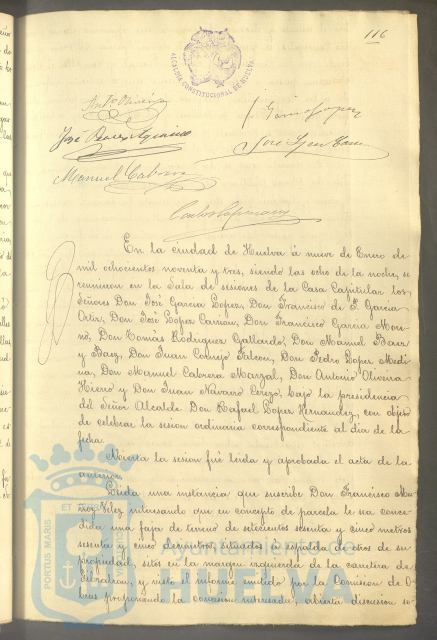 116
ALCALDIA CONSTITUCIONAL DE HUELVA
Antº Oliveira
J. García Lopez
José
José Lopez
Manuel Cabrera
En la ciudad de Huelva á nueve de Enero de
mil ochocientos noventa y tres, siendo las ocho de la noche, se
reunieron en la Sala de sesiones de la Casa Capitular los
Señores Don José García Lopez, Don Francisco de P. García
Ortiz, Don José Lopez Carrion, Don Francisco García More-
no, Don Tomas Rodriguez Gallardo, Don Manuel Baez
y Baez, Don Juan Cornejo Falcon, Don Pedro Lopez Medi-
na, Don Manuel Cabrera Marzal, Don Antonio Oliveira
Hierro y Don Juan Navarro Perezo, bajo la presidencia
del Señor Alcalde Don Rafael Lopez Hernandez, con objeto
de celebrar la sesion ordinaria correspondiente al dia de la
fecha.
Abierta la sesion fué leida y aprobada el acta de la
anterior.
Leida una instancia que suscribe Don Francisco Mu-
ñoz Velez interesando que en concepto de parcela le sea conce-
dida una faja de terreno de setecientos sesenta y cinco metros
sesenta y cinco decimetros situados á espalda de otros de su
propiedad, sitos en la margen izquierda de la carretera de
Gibraleon, y visto el informe emitido por la Comision de O-
bras proponiendo la concesion interesada, abierta discusion so-
PORTUS MARIS ET
Ayuntamiento de
HUELVA